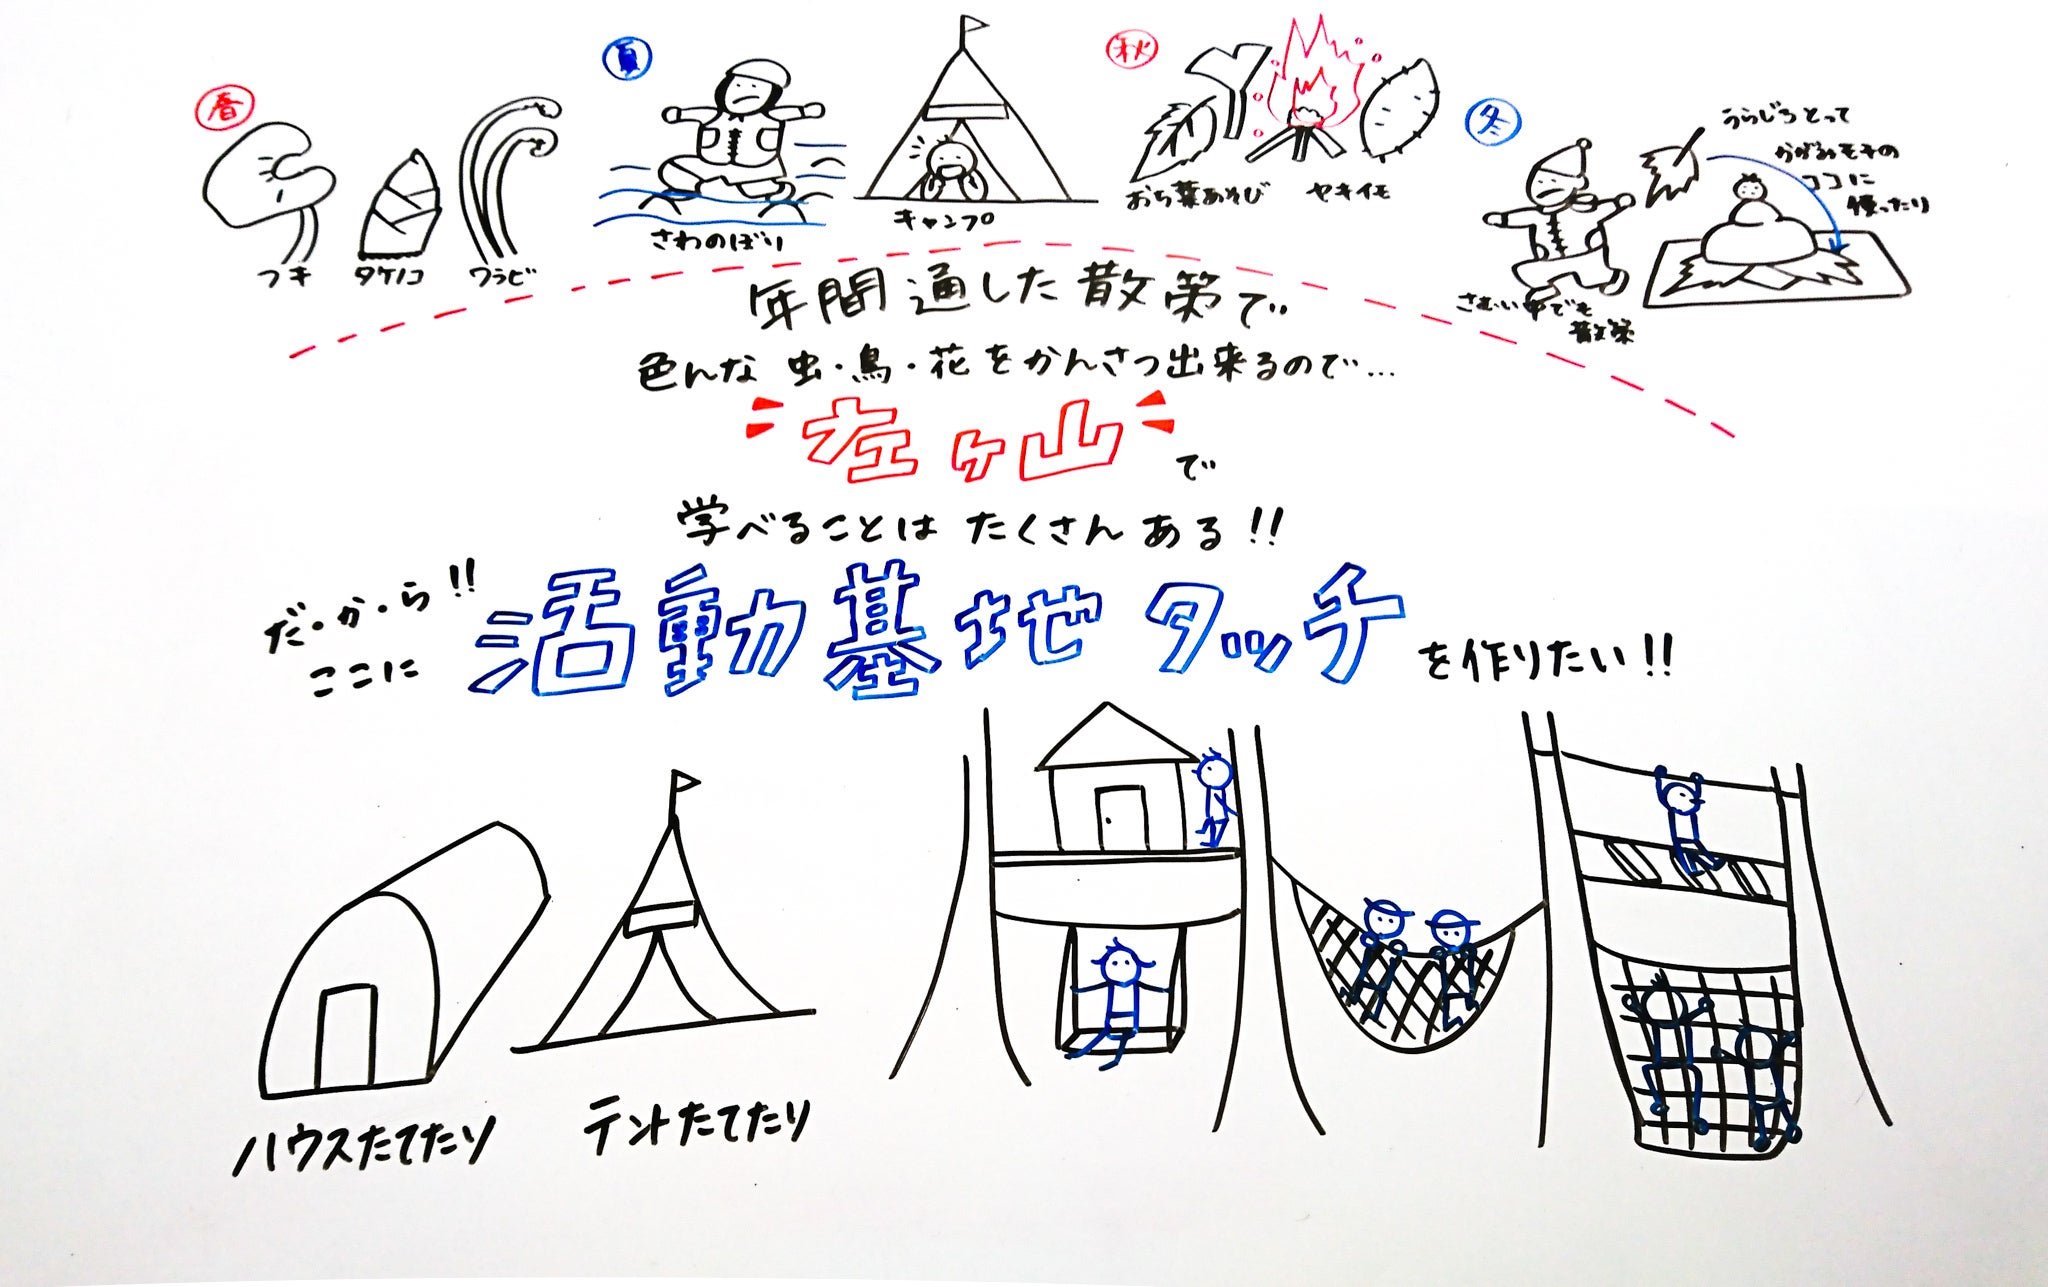 春
フキ
タケノコ
ワラビ
夏
さわのぼり
キャンプ
秋
おち葉あそび
ヤキイモ
冬
さむい中でも
散策
うらじろとって
かがみモチの
ココに
使ったり
年間通した散策で
色んな 虫・鳥・花をかんさつ出来るので…
左ヶ山で
学べることは たくさん ある!!
だ・か・ら!!
ここに
活動基地タッチを作りたい!!
ハウスたてたり
テントたてたり